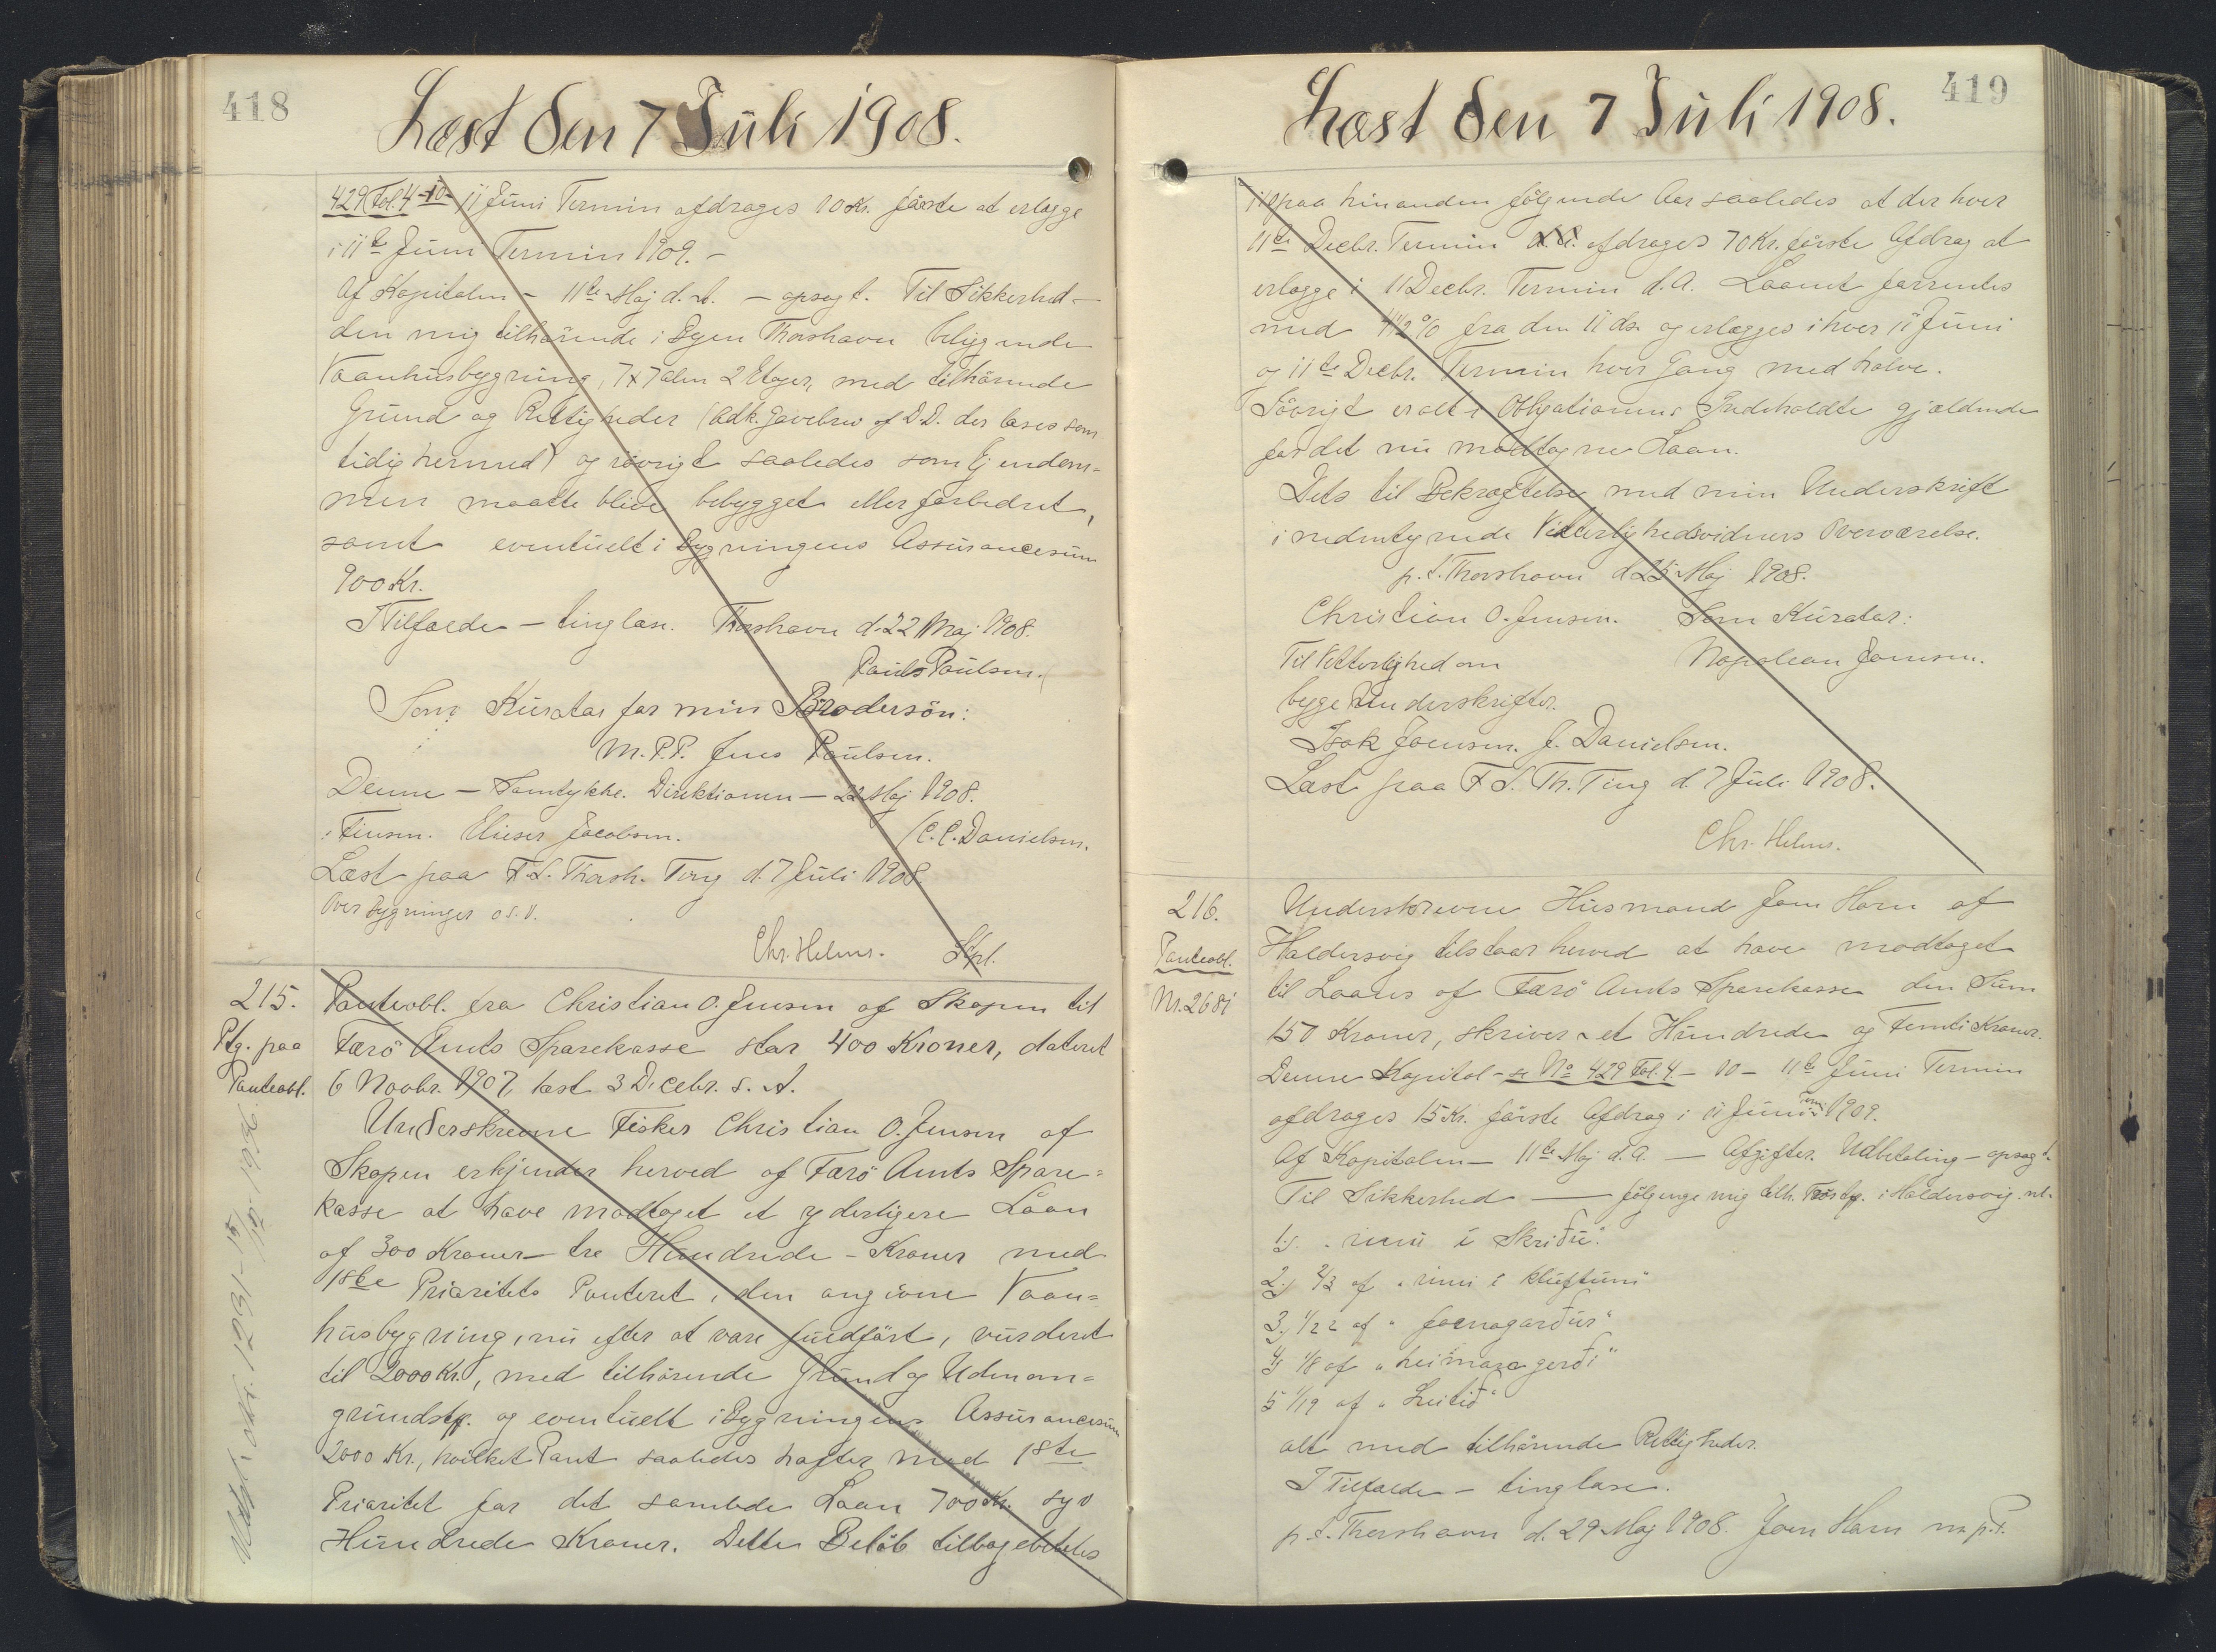 418
Læst den 7 Juli 1908.
429 Fol. 4 - 10 - 11 Juni Termin afdrages 10 Kr. første at erlægge
i 11te Juni Termin 1909. -
Af Kapitalen - 11te Maj d. A. - opsagt. Til Sikkerhed -
den mig tilhørende i Byen Thorshavn beliggende
Vaanhusbygning, 7 x 7 alen 2 Etager, med tilhørende
Grund og Rettigheder (adk. Gavebrev af D.D. der læses sam
tidig hermed) og iøvrigt saaledes som Ejendom-
men maatte blive bebygget eller forbedret,
samt eventuelt i Bygningens Assurancesum
900 Kr.
I Tilfælde - tinglæse. Thorshavn d. 22 Maj 1908.
Pauls Poulsen.
Som Kurator for min Brodersøn:
M.P.P. Jens Poulsen.
Denne - Samtykke. Direktionen - 22 Maj 1908.
Elieser Jacobsen. C.C. Danielsen.
Læst paa F.S. Thorsh. Ting d. 7 Juli 1908.
Over Bygninger o.s.v.
Chr. Helms. Stpl.
215.
Ptg. paa
Panteobl.
Panteobl. fra Christian O. Jensen af Skopen til
Færø Amts Sparekasse stor 400 Kroner, dateret
6 Novbr. 1907, læst 3 Decbr. s. A.
Underskrevne Fisker Christian O. Jensen af
Skopen erkjender herved af Færø Amts Spare-
kasse at have modtaget et yderligere Laan
af 300 Kroner - tre Hundrede - Kroner med
1ste Prioritets Panteret i den angivne Vaan-
husbygning, nu efter at være fuldført, vurderet
til 2000 Kr., med tilhørende Grund og Udmarn-
grundstk. og eventuelt i Bygningens Assurancesum
2000 Kr., hvilket Pant saaledes hæfter med 1ste
Prioritet for det samlede Laan 700 Kr. syv
Hundrede Kroner. Dette Beløb tilbagebetales
419
Læst den 7 Juli 1908.
i 10 paa hinanden følgende Aar saaledes at der hver
11te Decbr. Termin d. A. afdrages 70 Kr. første Afdrag at
erlægge i 11 Decbr. Termin d. A. Laanet forrentes
med 4 1/2 % fra den 11 ds. og erlægges i hver 11 Juni
og 11te Decbr. Termin hver Gang med halve.
Iøvrigt er alt i Obligationens Indeholdte gjældende
for det nu modtagne Laan.
Dets til Bekræftelse med min Underskrift
i nedentegnede Vitterlighedsvidners Overværelse.
p. t. Thorshavn d 25 Maj 1908.
Christian O. Jensen. Som Kurator:
Til Vitterlighed om Napoleon Joensen.
begge Underskrifter.
Isak Joensen. J. Danielsen.
Læst paa F S. Th. Ting d. 7 Juli 1908.
Chr. Helms.
216.
Panteobl.
Nr. 268i
Underskrevne Husmand Joen Horn af
Haldersvig tilstaar herved at have modtaget
til Laans af Færø Amts Sparekasse den Sum
150 Kroner, skriver - et Hundrede og Femti Kroner.
Denne Kapital - se No 429 Fol. 4 - 10 - 11te Juni Termin
afdrages 15 Kr. første Afdrag i 11 Juni Term. 1909.
Af Kapitalen - 11te Maj d. A. - Afgifter. Udbetaling - opsagt.
Til Sikkerhed - følgenge mig tilh. i Haldersvig. nl.
1.) inni i Skriðu"
2.) 2/3 af " inni i kluftum"
3.) 1/22 af " Joensgarður"
4) 1/8 af " heimaragerði"
5 1/19 af " Leitið"
alt med tilhørende Rettigheder.
I Tilfælde - tinglæse.
p. t. Thorshavn d. 29 Maj 1908. Joen Horn m. p. P.